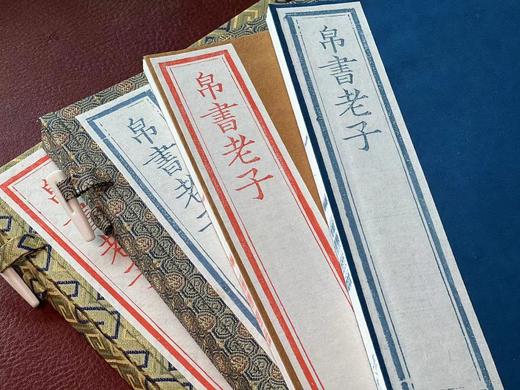 帛書老子
帛書老子
帛書老子
帛書老子